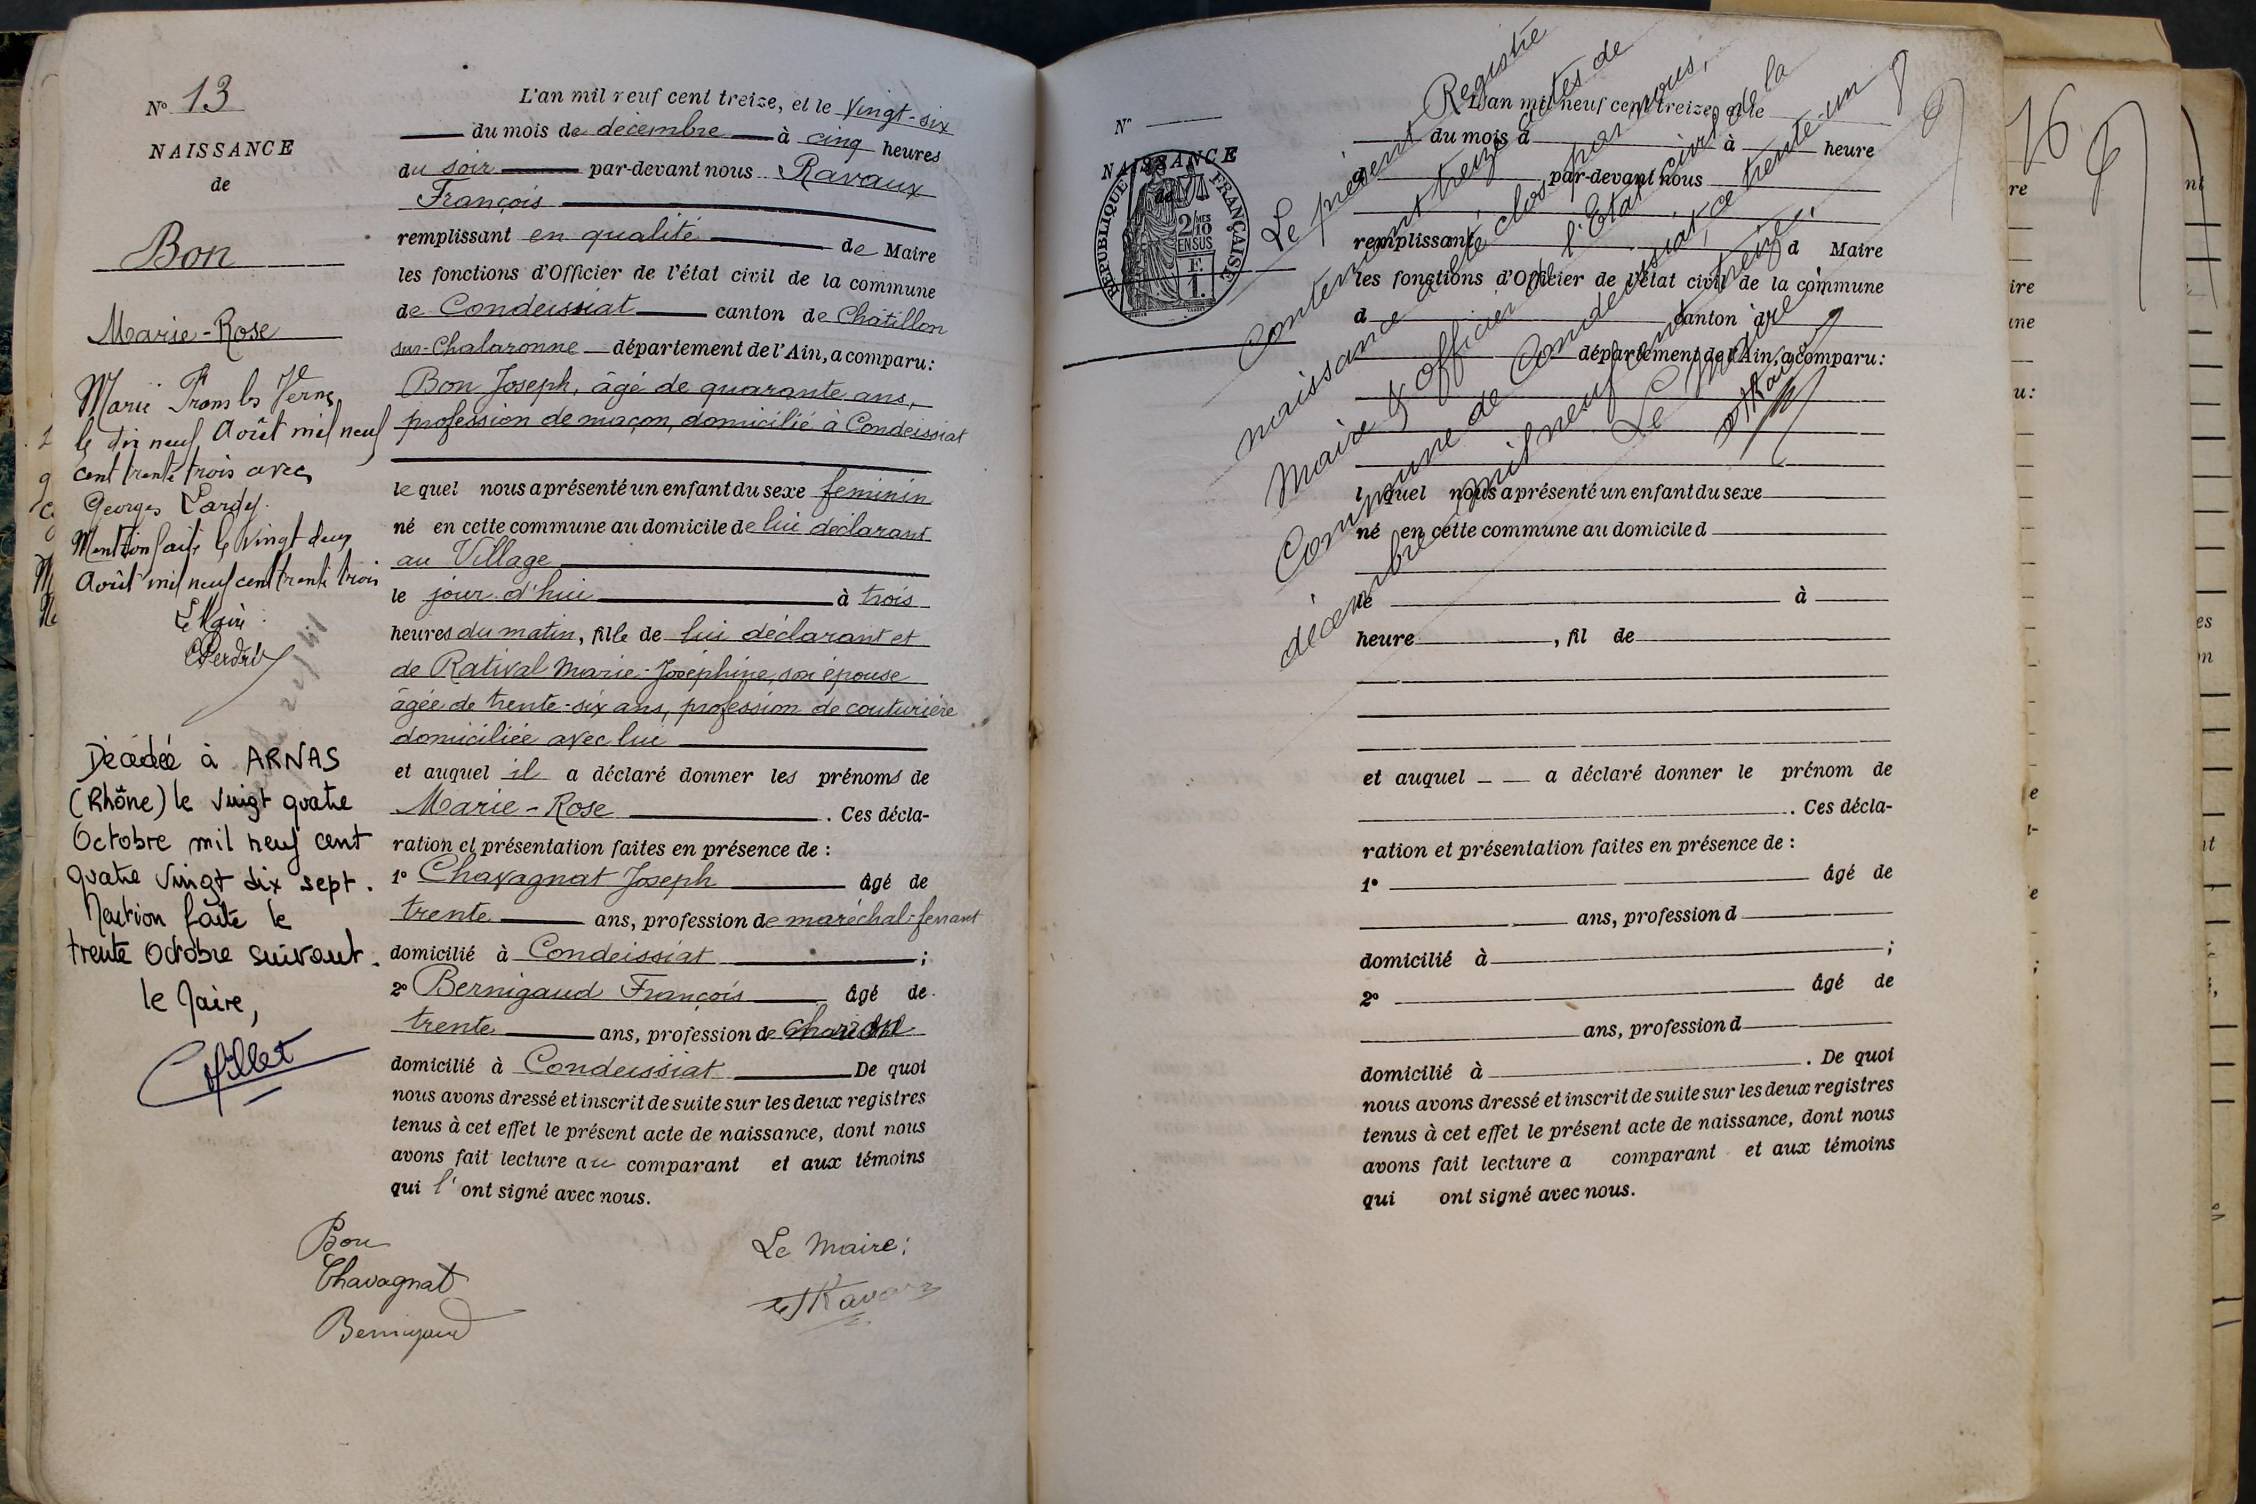 N° 13
NAISSANCE
de
Bon
Marie-Rose
le dix neuf Août mil neuf
cent trente trois avec
Georges Lardy.
Mention faite le vingt deux
Août mil neuf cent trente trois
Le Maire
Décédée à ARNAS
(Rhône) le vingt quatre
Octobre mil neuf cent
quatre vingt dix sept.
Mention faite le
trente Octobre suivant.
le Maire,
L'an mil neuf cent treize, et le vingt-six
du mois de décembre à cinq heures
du soir par-devant nous Ravaux
François
remplissant en qualité de Maire
les fonctions d'Officier de l'état civil de la commune
de Condeissiat canton de Châtillon
sur-Chalaronne département de l'Ain, a comparu:
Bon Joseph, âgé de quarante ans,
profession de maçon, domicilié à Condeissiat
le quel nous a présenté un enfant du sexe feminin
né en cette commune au domicile de lui déclarant
au Village
le jour d'hui à trois
heures du matin, fille de lui déclarant et
de Rativat Marie-Joséphine, son épouse
âgée de trente-six ans, profession de couturière
domiciliée avec lui
et auquel il a déclaré donner les prénoms de
Marie-Rose. Ces décla-
ration et présentation faites en présence de :
1° Chavagnat Joseph âgé de
trente ans, profession de maréchal-ferrant
domicilié à Condeissiat ;
2° Bernigaud François âgé de
trente ans, profession de charron
domicilié à Condeissiat De quoi
nous avons dressé et inscrit de suite sur les deux registres
tenus à cet effet le présent acte de naissance, dont nous
avons fait lecture au comparant et aux témoins
qui l'ont signé avec nous.
Bon
Chavagnat
Bernigaud
Le Maire:
Ravaux
N°
NAISSANCE
de
REPUBLIQUE FRANÇAISE
2/10 MES
EN SUS
F.
1.
L'an mil neuf cent treize, et le
du mois d à heure
par-devant nous
remplissant d Maire
les fonctions d'Officier de l'état civil de la commune
d canton d
département de l'Ain, a comparu:
l quel nous a présenté un enfant du sexe
né en cette commune au domicile d
le à
heure , fil de
et auquel a déclaré donner le prénom de
. Ces décla-
ration et présentation faites en présence de :
1° âgé de
ans, profession d
domicilié à ;
2° âgé de
ans, profession d
domicilié à . De quoi
nous avons dressé et inscrit de suite sur les deux registres
tenus à cet effet le présent acte de naissance, dont nous
avons fait lecture a comparant et aux témoins
qui ont signé avec nous.
Le présent Registre
contenant treize actes de
naissance a été clos par nous,
Maire & officier de l'Etat civil de la
Commune de Condeissiat, ce trente-un
décembre mil neuf cent treize.
Le Maire
16